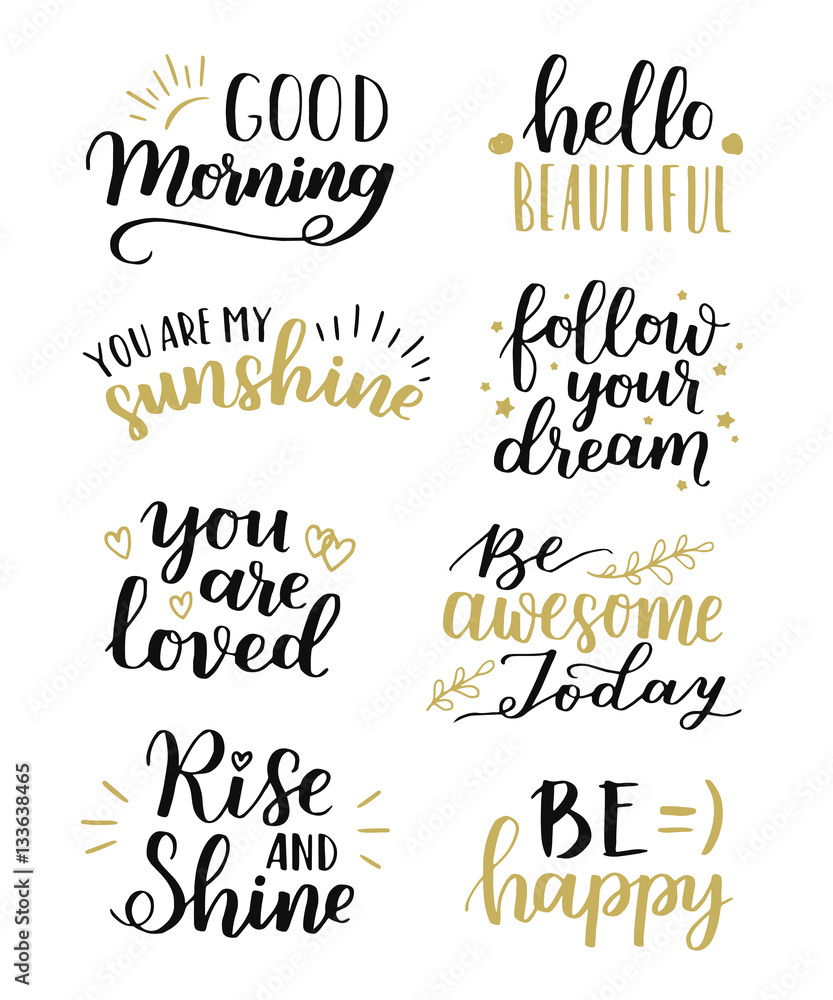 GOOD
Morning
hello
BEAUTIFUL
YOU ARE MY
sunshine
follow
your
dream
you
are
loved
Be
awesome
Today
Rise
AND
Shine
BE =)
happy
Adobe Stock | #133638465